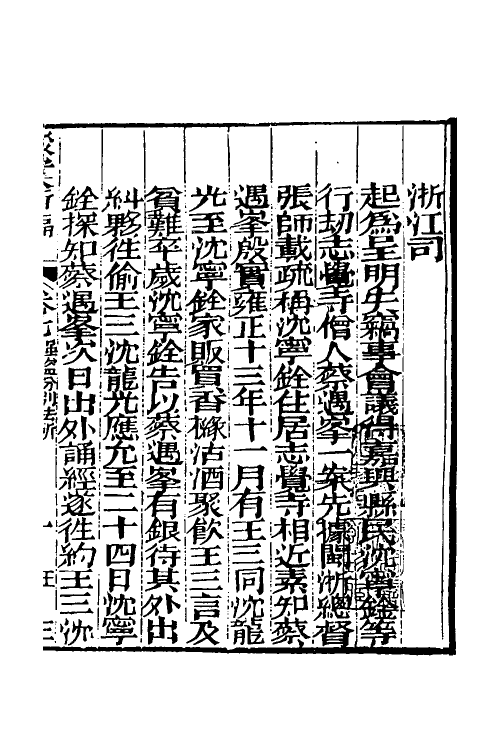 浙江司
起爲呈明失竊事會議得嘉興縣民沈寧銓等
行刼志覺寺僧人蔡遇峯一案先據閩浙總督
張師載疏稱沈寧銓住居志覺寺相近素知蔡
遇峯殷實雍正十三年十一月有王三同沈龍
光至沈寧銓家販賣香櫞沽酒聚飮王三言及
貧難卒歲沈寧銓告以蔡遇峯有銀待其外出
糾夥徃偷王三沈龍光應允至二十四日沈寧
銓探知蔡遇峯次日出外誦經遂徃約王三沈
卷七